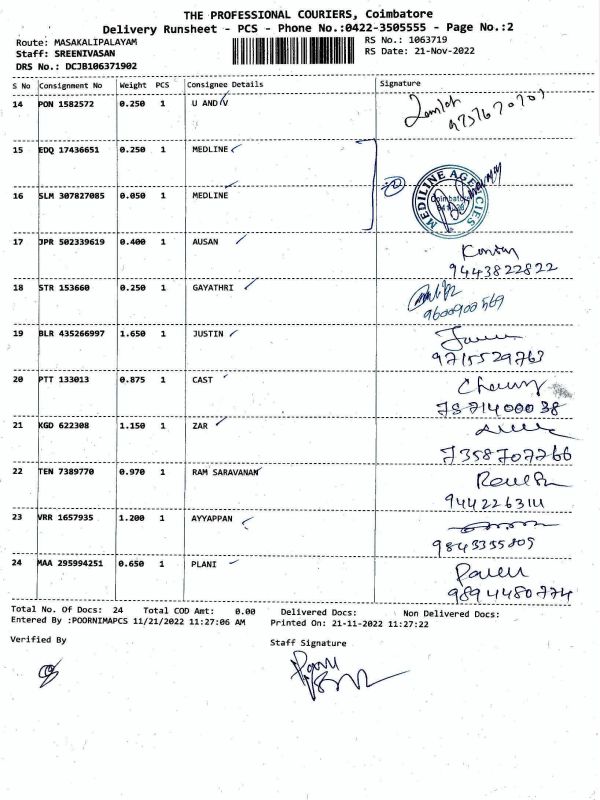 THE PROFESSIONAL COURIERS, Coimbatore
Delivery Runsheet - PCS - Phone No.:0422-3505555 - Page No.:2
Route: MASAKALIPALAYAM
RS No.: 1063719
Staff: SREENIVASAN
RS Date: 21-Nov-2022
DRS No.: DCJB106371902
S No Consignment No Weight PCS Consignee Details Signature
14 PON 1582572 0.250 1 U AND V
15 EDQ 17436651 0.250 1 MEDLINE
16 SLM 307827085 0.050 1 MEDLINE
MEDILINE AGENCIES
Coimbatore
17 JPR 502339619 0.400 1 AUSAN
9443822822
18 STR 153660 0.250 1 GAYATHRI
9600900569
19 BLR 435266997 1.650 1 JUSTIN
9715529763
20 PTT 133013 0.875 1 CAST
7871400038
21 KGD 622308 1.150 1 ZAR
7358707766
22 TEN 7389770 0.970 1 RAM SARAVANAN
9442263111
23 VRR 1657935 1.200 1 AYYAPPAN
9843335809
24 MAA 295994251 0.650 1 PLANI
9894480774
Total No. Of Docs: 24 Total COD Amt: 0.00 Delivered Docs: Non Delivered Docs:
Entered By :POORNIMAPCS 11/21/2022 11:27:06 AM Printed On: 21-11-2022 11:27:22
Verified By Staff Signature